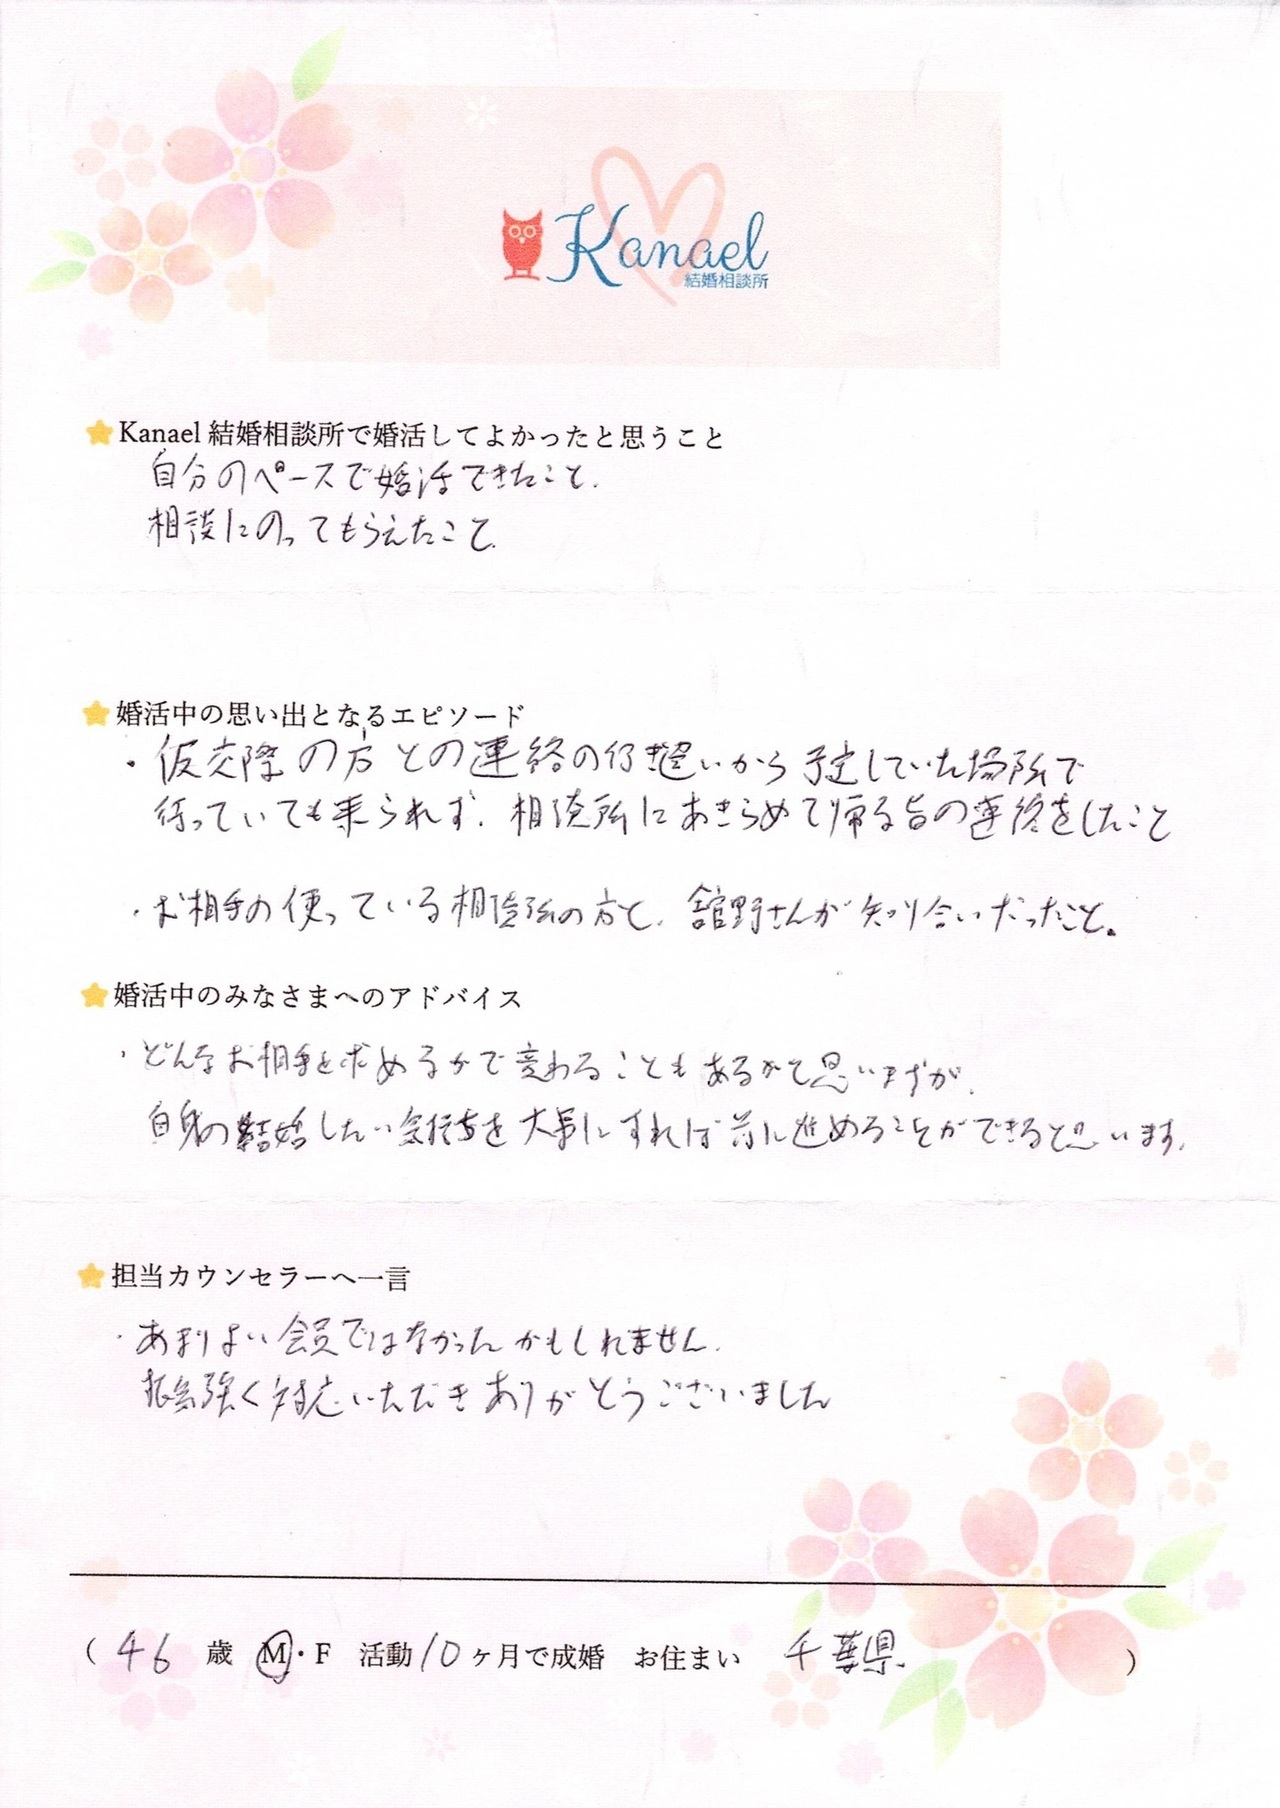 Kanael
結婚相談所
Kanael 結婚相談所で婚活してよかったと思うこと
自分のペースで婚活できたこと.
相談にのってもらえたこと.
婚活中の思い出となるエピソード
・仮交際の方との連絡の行き違いから予定していた場所で
待っていても来られず、相談所にあきらめて帰る旨の連絡をしたこと
・お相手の使っている相談所の方と、舘野さんが知り合いだったこと。
婚活中のみなさまへのアドバイス
・どんなお相手を求めるかで変わることもあるかと思いますが、
自身の結婚したい気持ちを大事にすれば前に進めることができると思います.
担当カウンセラーへ一言
・あまりよい会員ではなかったかもしれません.
根気強く対応いただきありがとうございました
( 46 歳 M・F 活動10ヶ月で成婚 お住まい 千葉県. )